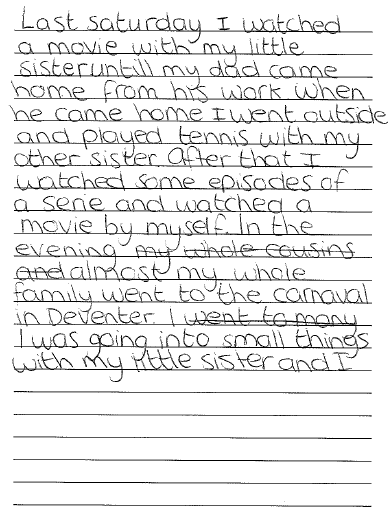 Last saturday I watched
a movie with my little
sister untill my dad came
home from his work when
he came home I went outside
and played tennis with my
other sister. After that I
watched some episodes of
a serie and watched a
movie by myself. In the
evening my whole cousins
and almost my whole
family went to the carnaval
in Deventer I went to many
I was going into small things
with my little sister and I